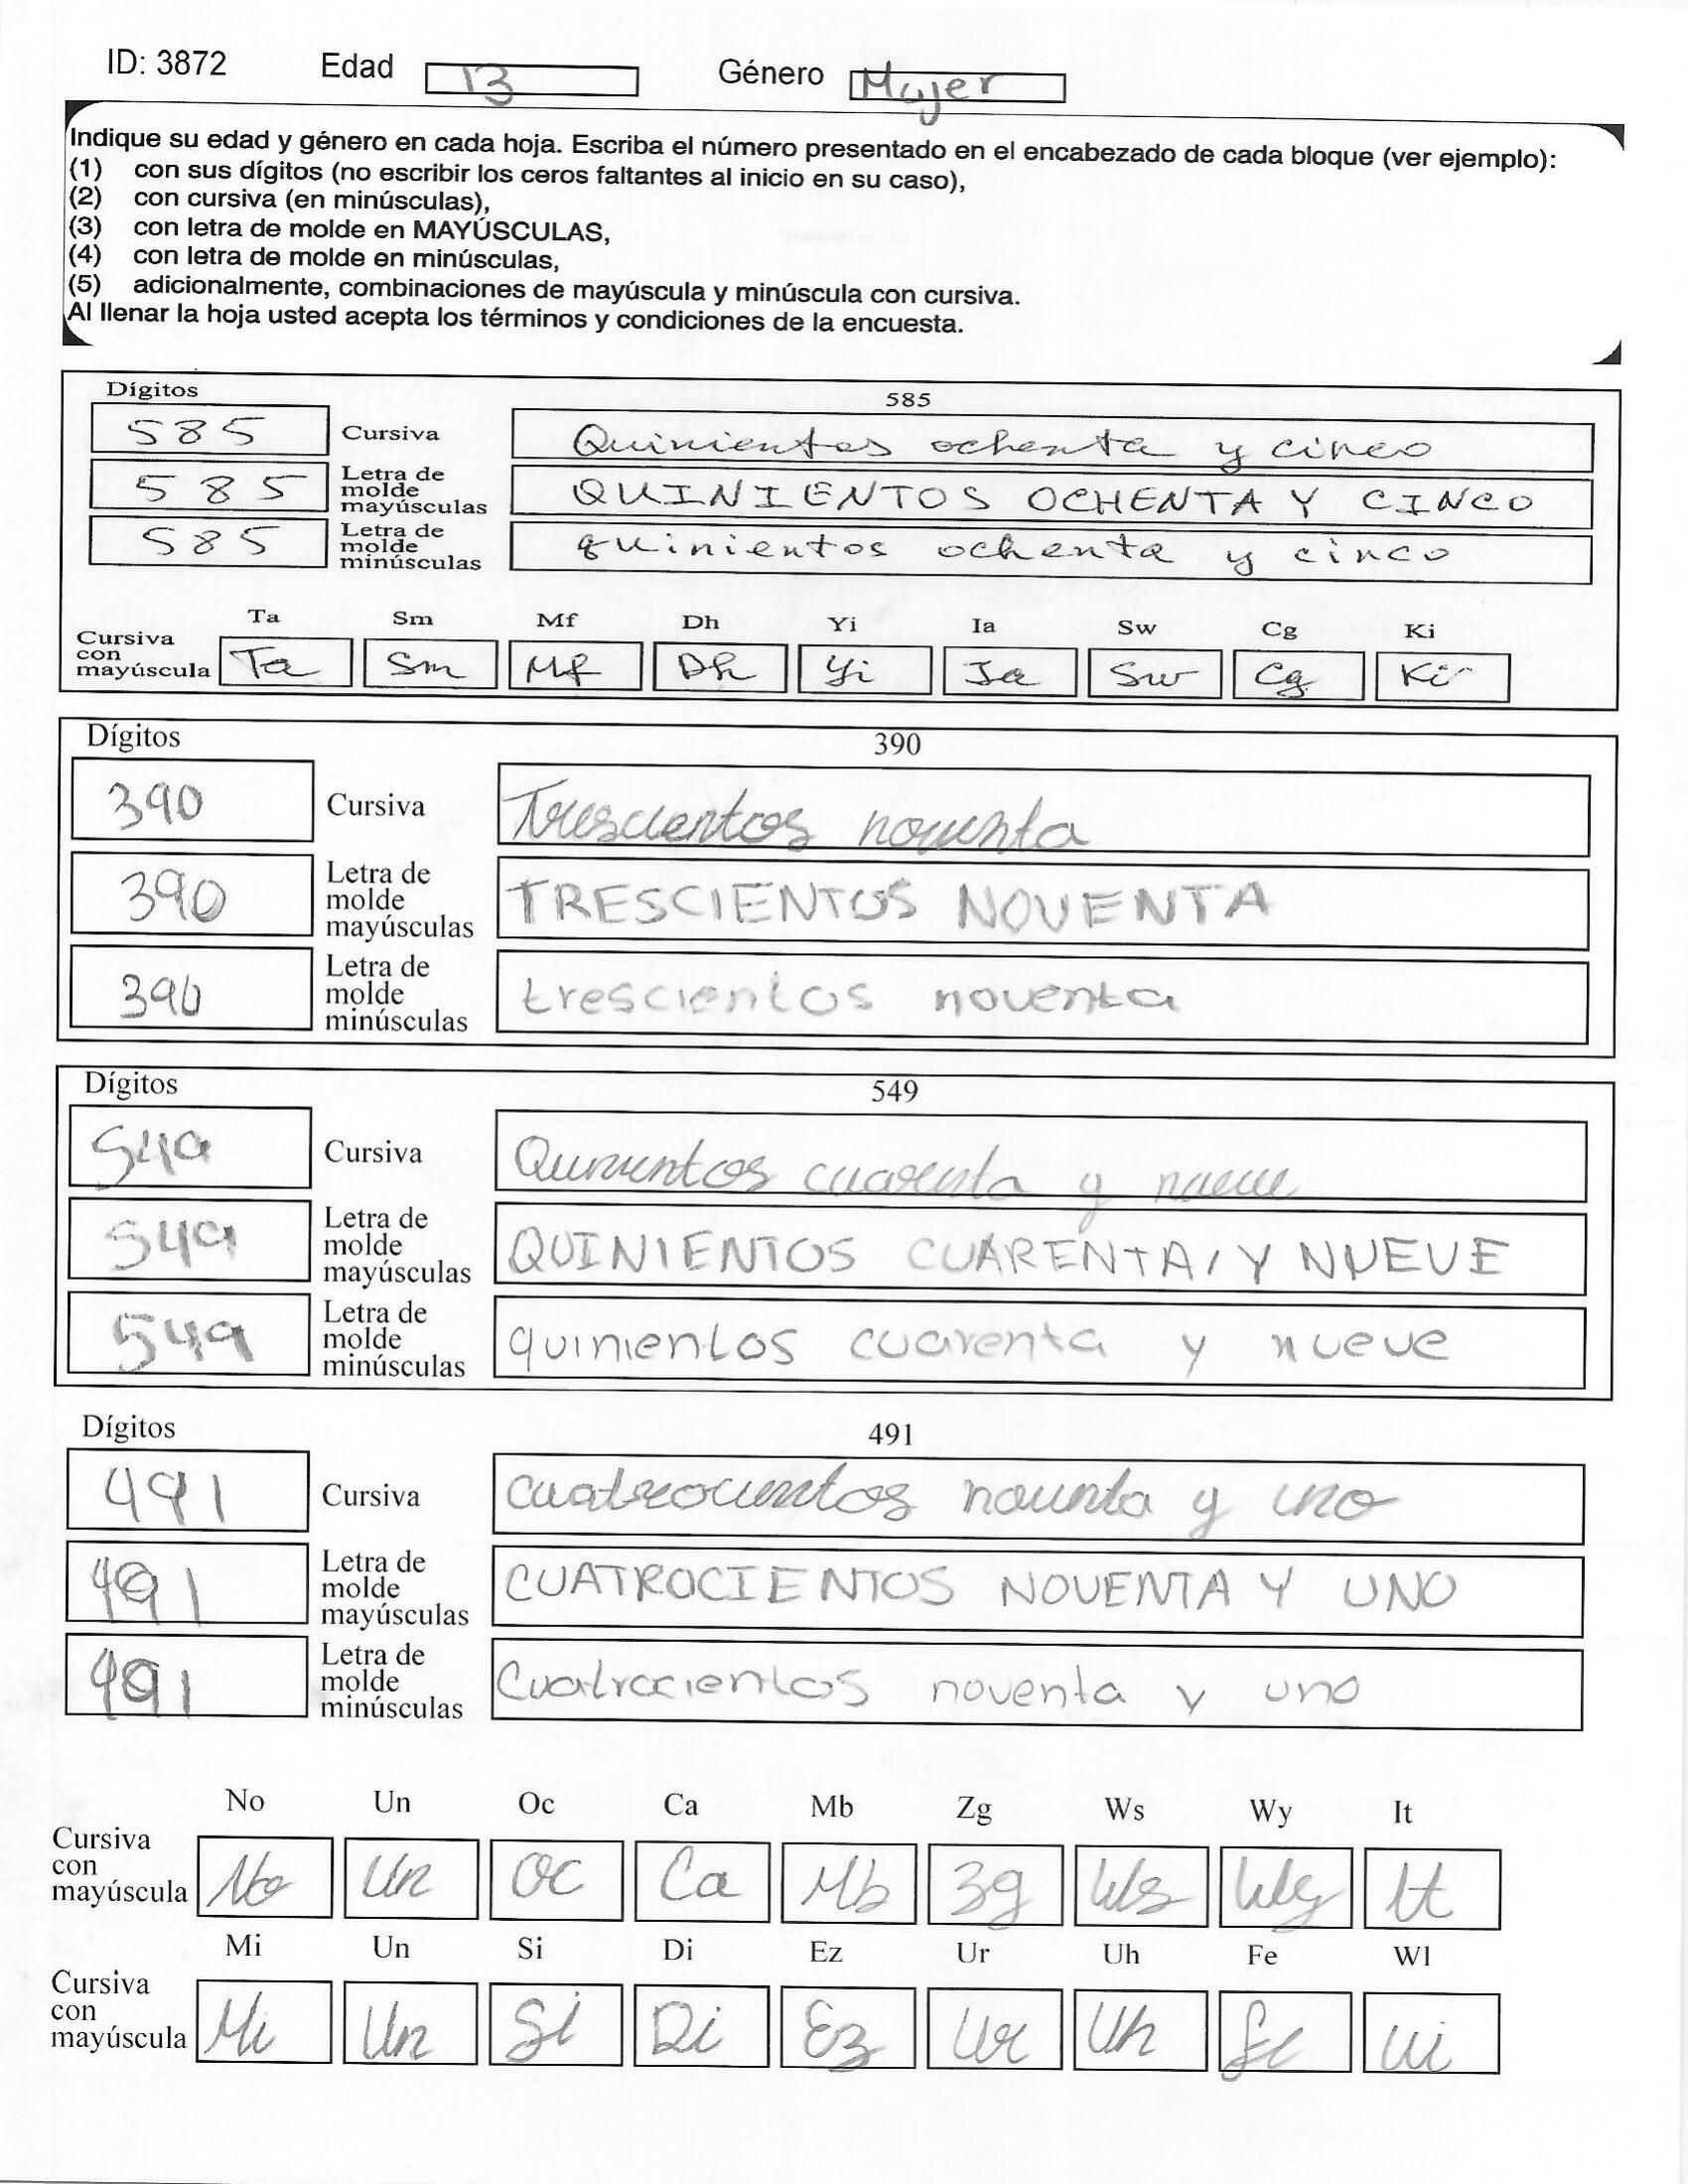 ID: 3872 Edad 13 Género Mujer
Indique su edad y género en cada hoja. Escriba el número presentado en el encabezado de cada bloque (ver ejemplo):
(1) con sus dígitos (no escribir los ceros faltantes al inicio en su caso),
(2) con cursiva (en minúsculas),
(3) con letra de molde en MAYÚSCULAS,
(4) con letra de molde en minúsculas,
(5) adicionalmente, combinaciones de mayúscula y minúscula con cursiva.
Al llenar la hoja usted acepta los términos y condiciones de la encuesta.
Dígitos 585
585 Cursiva Quinientos ochenta y cinco
585 Letra de molde mayúsculas QUINIENTOS OCHENTA Y CINCO
585 Letra de molde minúsculas quinientos ochenta y cinco
Ta Sm Mf Dh Yi Ia Sw Cg Ki
Cursiva con mayúscula Ta Sm Mf Dh Yi Ia Sw Cg Ki
Dígitos 390
390 Cursiva Trescientos noventa
390 Letra de molde mayúsculas TRESCIENTOS NOVENTA
390 Letra de molde minúsculas trescientos noventa
Dígitos 549
549 Cursiva Quinientos cuarenta y nueve
549 Letra de molde mayúsculas QUINIENTOS CUARENTA/Y NUEVE
549 Letra de molde minúsculas quinientos cuarenta y nueve
Dígitos 491
491 Cursiva cuatrocientos noventa y uno
491 Letra de molde mayúsculas CUATROCIENTOS NOVENTA Y UNO
491 Letra de molde minúsculas Cuatrocientos noventa y uno
No Un Oc Ca Mb Zg Ws Wy It
Cursiva con mayúscula No Un Oc Ca Mb Zg Ws Wy It
Mi Un Si Di Ez Ur Uh Fe Wl
Cursiva con mayúscula Mi Un Si Di Ez Ur Uh Fe Wi